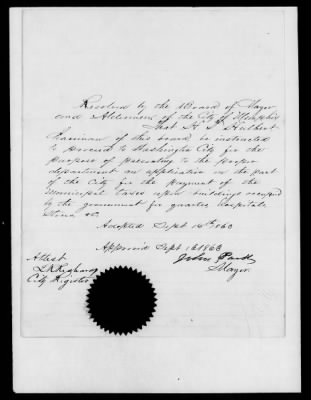 Resolved by the Board of Mayor
and Aldermen of the City of Memphis
That H. T. Hulbert
Chairman of this board be instructed
to proceed to Washington City for the
purpose of presenting to the proper
department an application on the part
of the City for the payment of the
Municipal Taxes upon buildings occupied
by the government for quarters Hospitals
Stores &c.
Adopted Sept 15th 1863
Approved Sept 16 1863
John Park
Mayor.
Attest
City Register